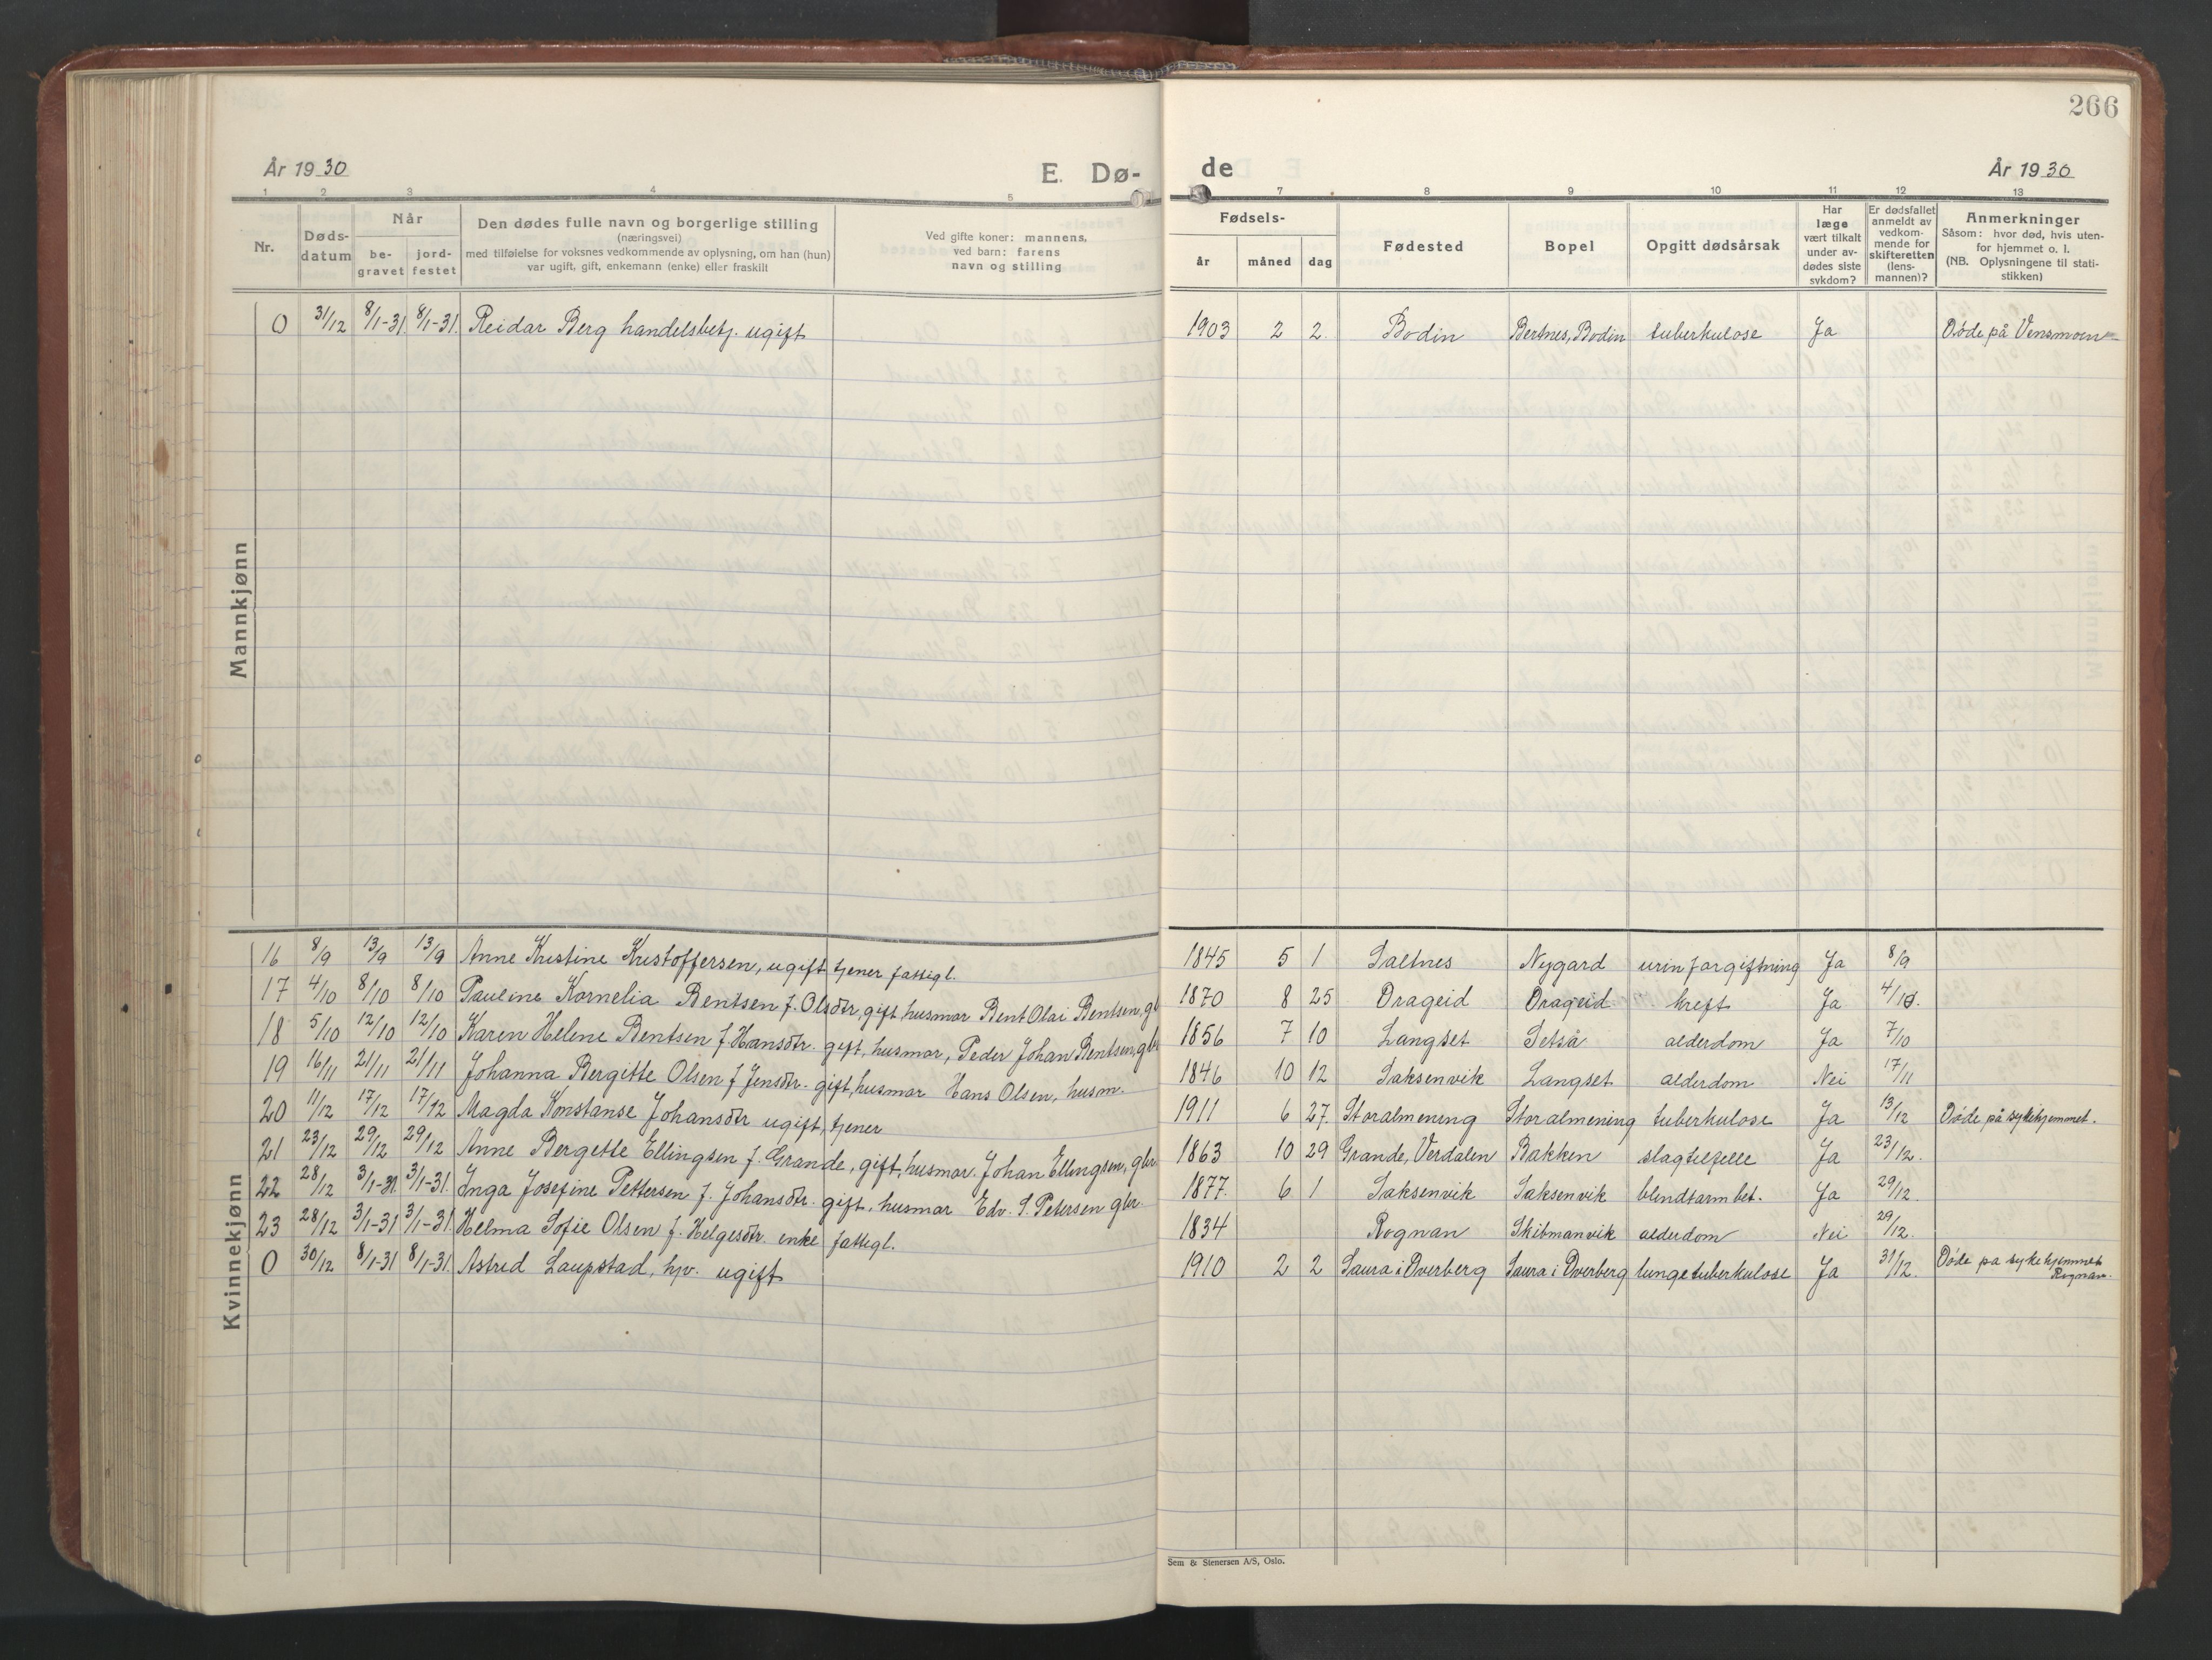 266
År 1930
E. Dø-
de
År 1930
1 2 3 4 5 7 8 9 10 11 12 13
Nr.
Døds-
datum
Når
be-
gravet
jord-
festet
Den dødes fulle navn og borgerlige stilling
(næringsvei)
med tilføielse for voksnes vedkommende av oplysning, om han (hun)
var ugift, gift, enkemann (enke) eller fraskilt
Ved gifte koner: mannens,
ved barn: farens
navn og stilling
Fødsels-
år måned dag
Fødested
Bopel
Opgitt dødsårsak
Har
læge
vært tilkalt
under av-
dødes siste
sykdom?
Er dødsfallet
anmeldt av
vedkom-
mende for
skifteretten
(lens-
mannen)?
Anmerkninger
Såsom: hvor død, hvis uten-
for hjemmet o. l.
(NB. Oplysningene til stati-
stikken)
Mannkjønn
0 31/12 8/1-31 8/1-31. Reidar Berg handelsbetj. ugift 1903 2 2. Bodin Bertnes, Bodin tuberkulose Ja Døde på Vensmoen
Kvinnekjønn
16 8/9 13/9 13/9 Anne Kristine Kristoffersen, ugift tjener fattigl. 1845 5 1 Saltnes Nygard urinforgiftning Ja 8/9
17 4/10 8/10 8/10 Pauline Kornelia Bentsen f. Olsdtr, gift, husmor Bent Olai Bentsen, gb 1870 8 25 Drageid Drageid kreft Ja 4/10.
18 5/10 12/10 12/10 Karen Helene Bentsen f. Hansdtr. gift, husmor, Peder Johan Bentsen, gbr 1856 7 10 Langset Setså alderdom Ja 7/10
19 16/11 21/11 21/11 Johanna Bergitte Olsen f Jensdtr. gift, husmor Hans Olsen, husm. 1846 10 12 Saksenvik Langset alderdom Nei 17/11
20 11/12 17/12 17/12 Magda Konstanse Johansdtr ugift, tjener 1911 6 27. Storalmening Storalmening tuberkulose Ja 13/12 Døde på sykehjemmet.
21 23/12 29/12 29/12 Anne Bergette Ellingsen f. Grande, gift, husmor. Johan Ellingsen, gbr 1863 10 29 Grande, Verdalen Bakken slagtilfelle Ja 23/12.
22 28/12 3/1-31. 3/1-31. Inga Josefine Pettersen f. Johansdtr. gift, husmor Edv. S. Petersen gbr. 1877. 6 1 Saksenvik Saksenvik blindtarmbet. Ja 29/12.
23 28/12 3/1-31 3/1-31. Helma Sofie Olsen f. Helgesdtr. enke fattigl. 1834 Rognan Skibmanvik alderdom Nei 29/12.
0 30/12 8/1-31 8/1-31. Astrid Laupstad, hjv. ugift 1910 2 2 Saura i Overberg Saura i Overberg lungetuberkulose Ja 31/12. Døde på sykehjemmet
Rognan.
Sem & Stenersen A/S, Oslo.